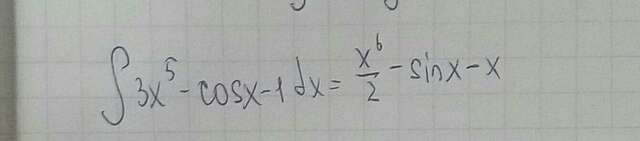 ∫3x⁵-cosx-1dx=x⁶/2-sinx-x